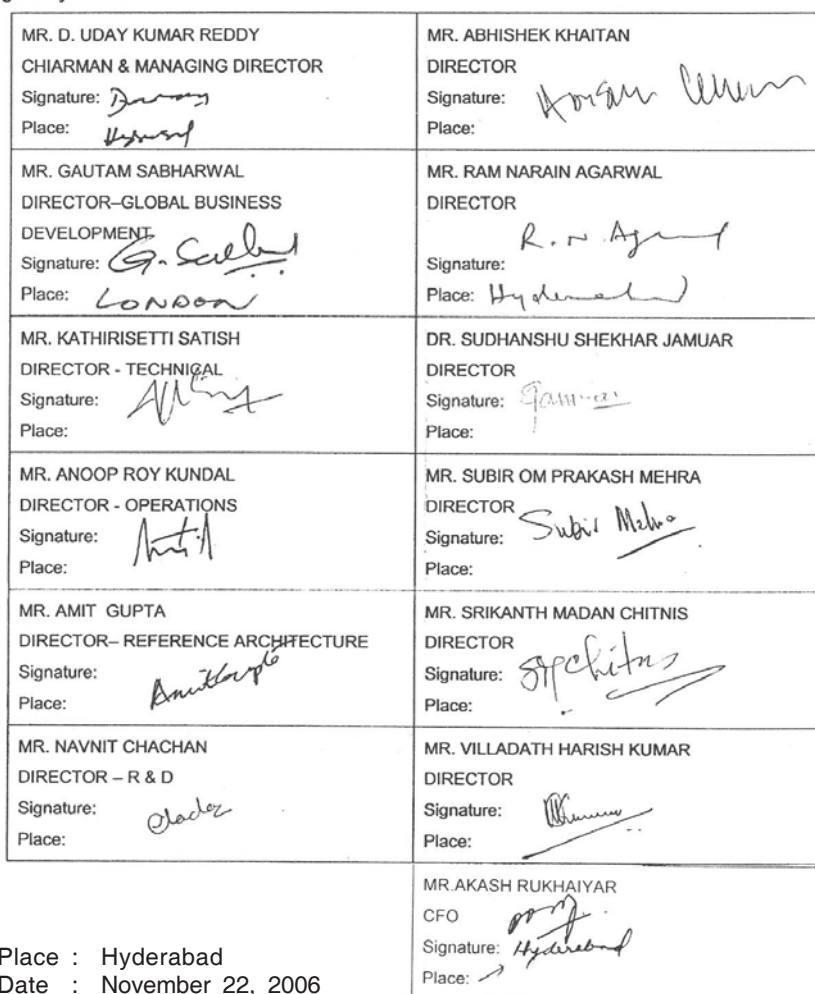 MR. D. UDAY KUMAR REDDY
CHIARMAN & MANAGING DIRECTOR
Signature:
Place:
MR. ABHISHEK KHAITAN
DIRECTOR
Signature:
Place:
MR. GAUTAM SABHARWAL
DIRECTOR–GLOBAL BUSINESS
DEVELOPMENT
Signature: G.
Place: LONDON
MR. RAM NARAIN AGARWAL
DIRECTOR
Signature: R. N.
Place: Hyderabad
MR. KATHIRISETTI SATISH
DIRECTOR - TECHNICAL
Signature:
Place:
DR. SUDHANSHU SHEKHAR JAMUAR
DIRECTOR
Signature:
Place:
MR. ANOOP ROY KUNDAL
DIRECTOR - OPERATIONS
Signature:
Place:
MR. SUBIR OM PRAKASH MEHRA
DIRECTOR
Signature: Subir Mehra
Place:
MR. AMIT GUPTA
DIRECTOR– REFERENCE ARCHITECTURE
Signature: Amit Gupta
Place:
MR. SRIKANTH MADAN CHITNIS
DIRECTOR
Signature: Chitnis
Place:
MR. NAVNIT CHACHAN
DIRECTOR – R & D
Signature:
Place:
MR. VILLADATH HARISH KUMAR
DIRECTOR
Signature:
Place:
MR.AKASH RUKHAIYAR
CFO
Signature: Hyderabad
Place:
Place : Hyderabad
Date : November 22, 2006